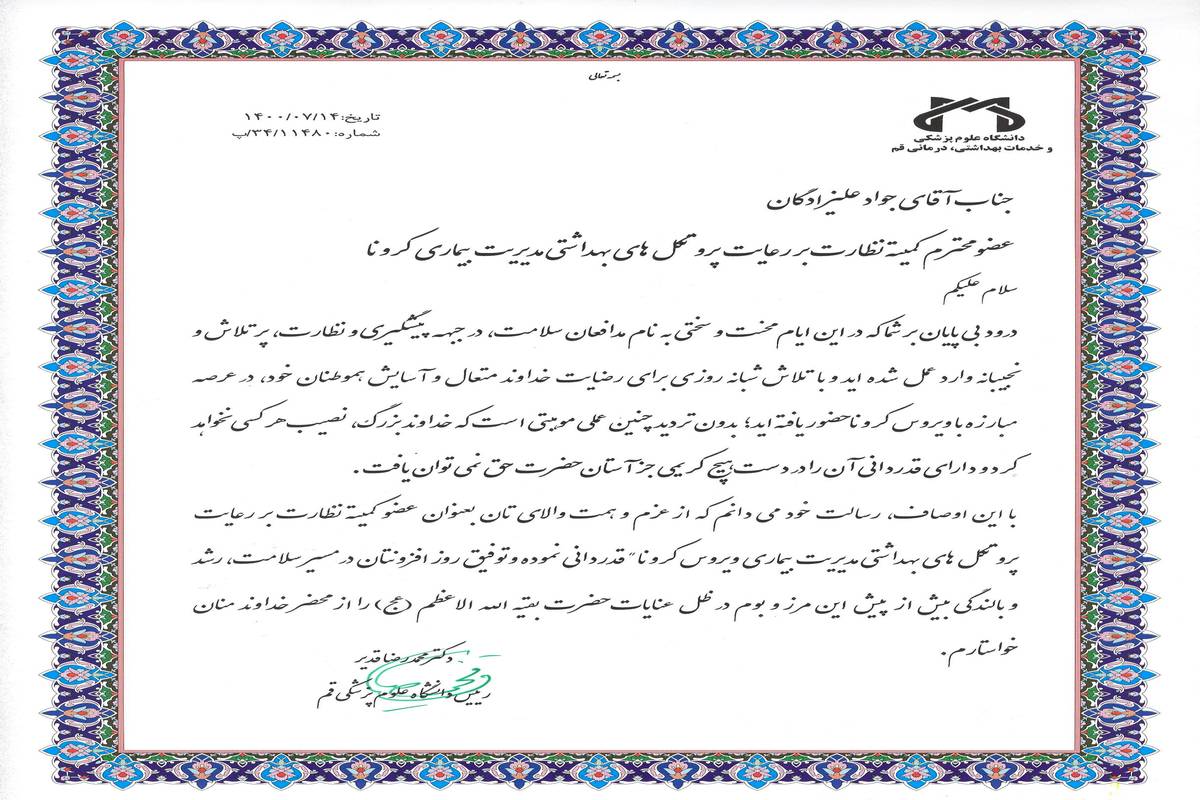 بسمه تعالی
تاریخ: ۱۴۰۰/۰۷/۱۴
شماره: ۳۴/۱۱۴۸۰/پ
دانشگاه علوم پزشکی
و خدمات بهداشتی، درمانی قم
جناب آقای جواد علیزادگان
عضو محترم کمیته نظارت بر رعایت پروتکل های بهداشتی مدیریت بیماری کرونا
سلام علیکم
درود بی پایان بر شما که در این ایام محنت و سختی به نام مدافعان سلامت، در جبهه پیشگیری و نظارت، پرتلاش و
نجیبانه وارد عمل شده اید و با تلاش شبانه روزی برای رضایت خداوند متعال و آسایش هموطنان خود، در عرصه
مبارزه با ویروس کرونا حضور یافته اید؛ بدون تردید چنین عملی موهبتی است که خداوند بزرگ، نصیب هر کسی نخواهد
کرد و دارای قدردانی آن را در دست هیچ کریمی جز آستان حضرت حق نمی توان یافت.
با این اوصاف، رسالت خود می دانم که از عزم و همت والای تان بعنوان عضو کمیته نظارت بر رعایت
پروتکل های بهداشتی مدیریت بیماری ویروس کرونا" قدردانی نموده و توفیق روز افزونتان در مسیر سلامت، رشد
و بالندگی بیش از پیش این مرز و بوم در ظل عنایات حضرت بقیه الله الاعظم (عج) را از محضر خداوند منان
خواستارم.
دکتر محمدرضا قدیر
رییس دانشگاه علوم پزشکی قم